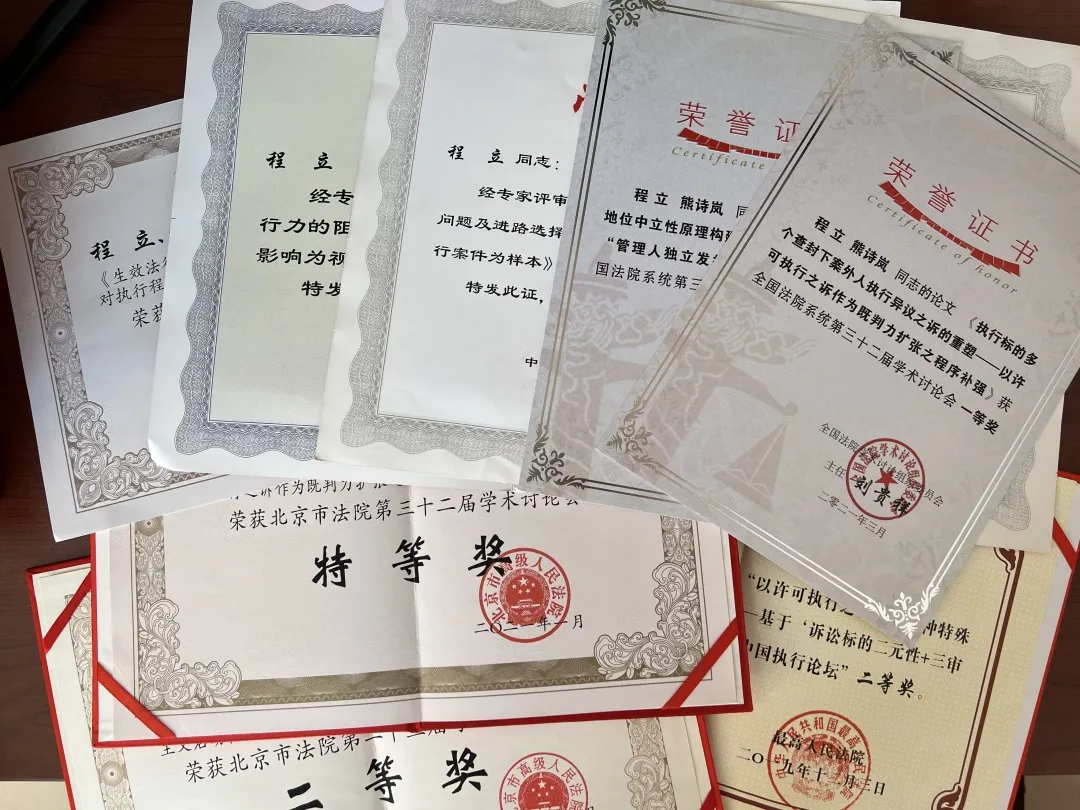 程 立、
《生效法
对执行程
荣获
程 立
经专
行力的阻
影响为视
特发
程 立 同志：
经专家评审
问题及进路选择
行案件为样本》
特发此证，
中
荣誉证
Certificate
程 立 熊诗岚 同
地位中立性原理构建
“管理人独立发
国法院系统第三
荣誉证书
Certificate of honor
程 立 熊诗岚 同志的论文 《执行标的多
个查封下案外人执行异议之诉的重塑——以许
可执行之诉作为既判力扩张之程序补强》获
全国法院系统第三十二届学术讨论会 一等奖
全国法院学术讨论组织委员会
主任 刘贵祥
二〇二一年三月
之诉作为既判力扩张
荣获北京市法院第三十二届学术讨论会
特 等 奖
北京市高级人民法院
二〇二一年一月
荣获北京市法院第三十二届学
二 等 奖
北京市高级人民法院
“以许可执行之
种特殊
—基于‘诉讼标的二元性+三审
中国执行论坛”二等奖。
最高人民法院
二〇一九年十一月三日